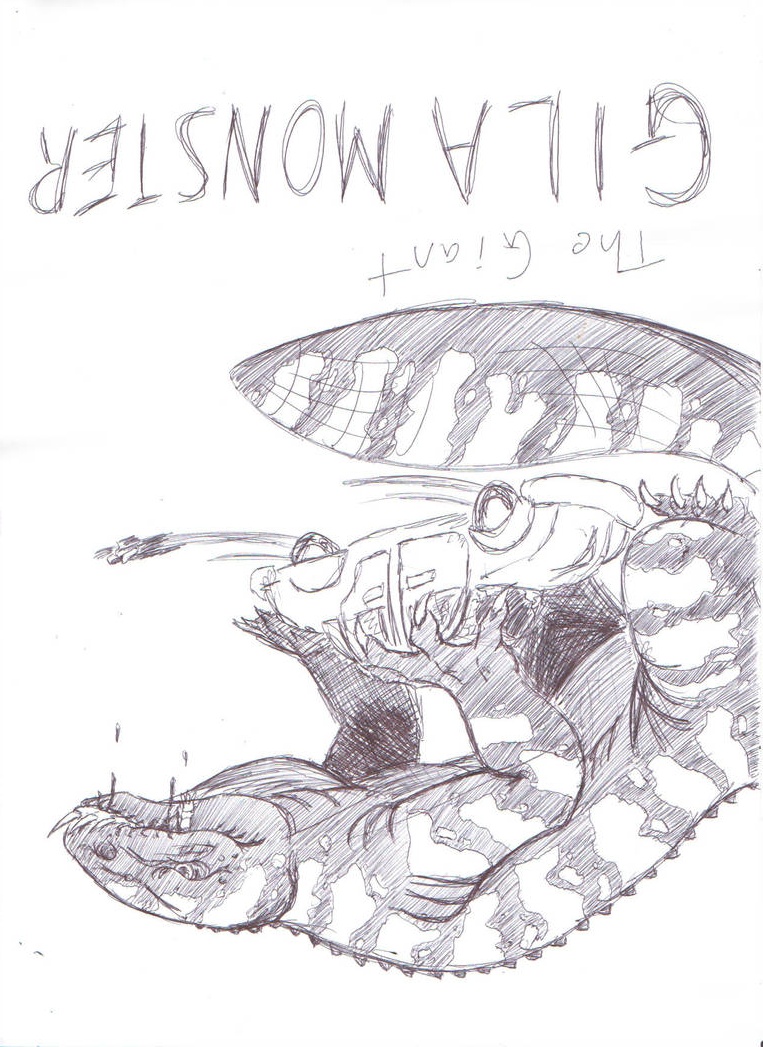 The Giant
GILA MONSTER